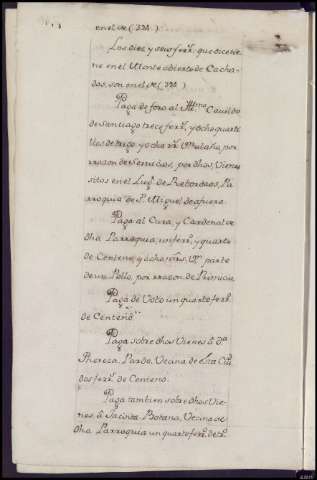 en el Nº (332.)
Los diez y seis ferr.s que tiene
ne en el Monte abierto de Cacha-
das, son en el Nº (331.)
Paga de foro al Ill.mo Cavildo
de Santiago trece ferr.s, y ocho quarti-
llos de trigo, y ocho rr.s Vn
razon de Servicios, por dhos, Vienes
sitos en el Lug.r de Rebordaos, Pa-
rroquia de S.n Miguel de afuera.
Paga al Cura, y Cardenal de
dha Parroquia, un ferr.o, y quarto
de Centeno, y ocho mrs. Vn parte
de un Pollo, por rrazon de Primicia
Paga de Voto un quarto ferr.o
de Centeno.
Paga sobre dhos Vienes á D.a
Theresa Pardo, Vecina de esta Ciu.d
dos ferr.s de Centeno.
Paga tambien sobre dhos Vie-
nes á Jacinta Botana, Vecina de
dha Parroquia un quarto ferr.o de tr.o